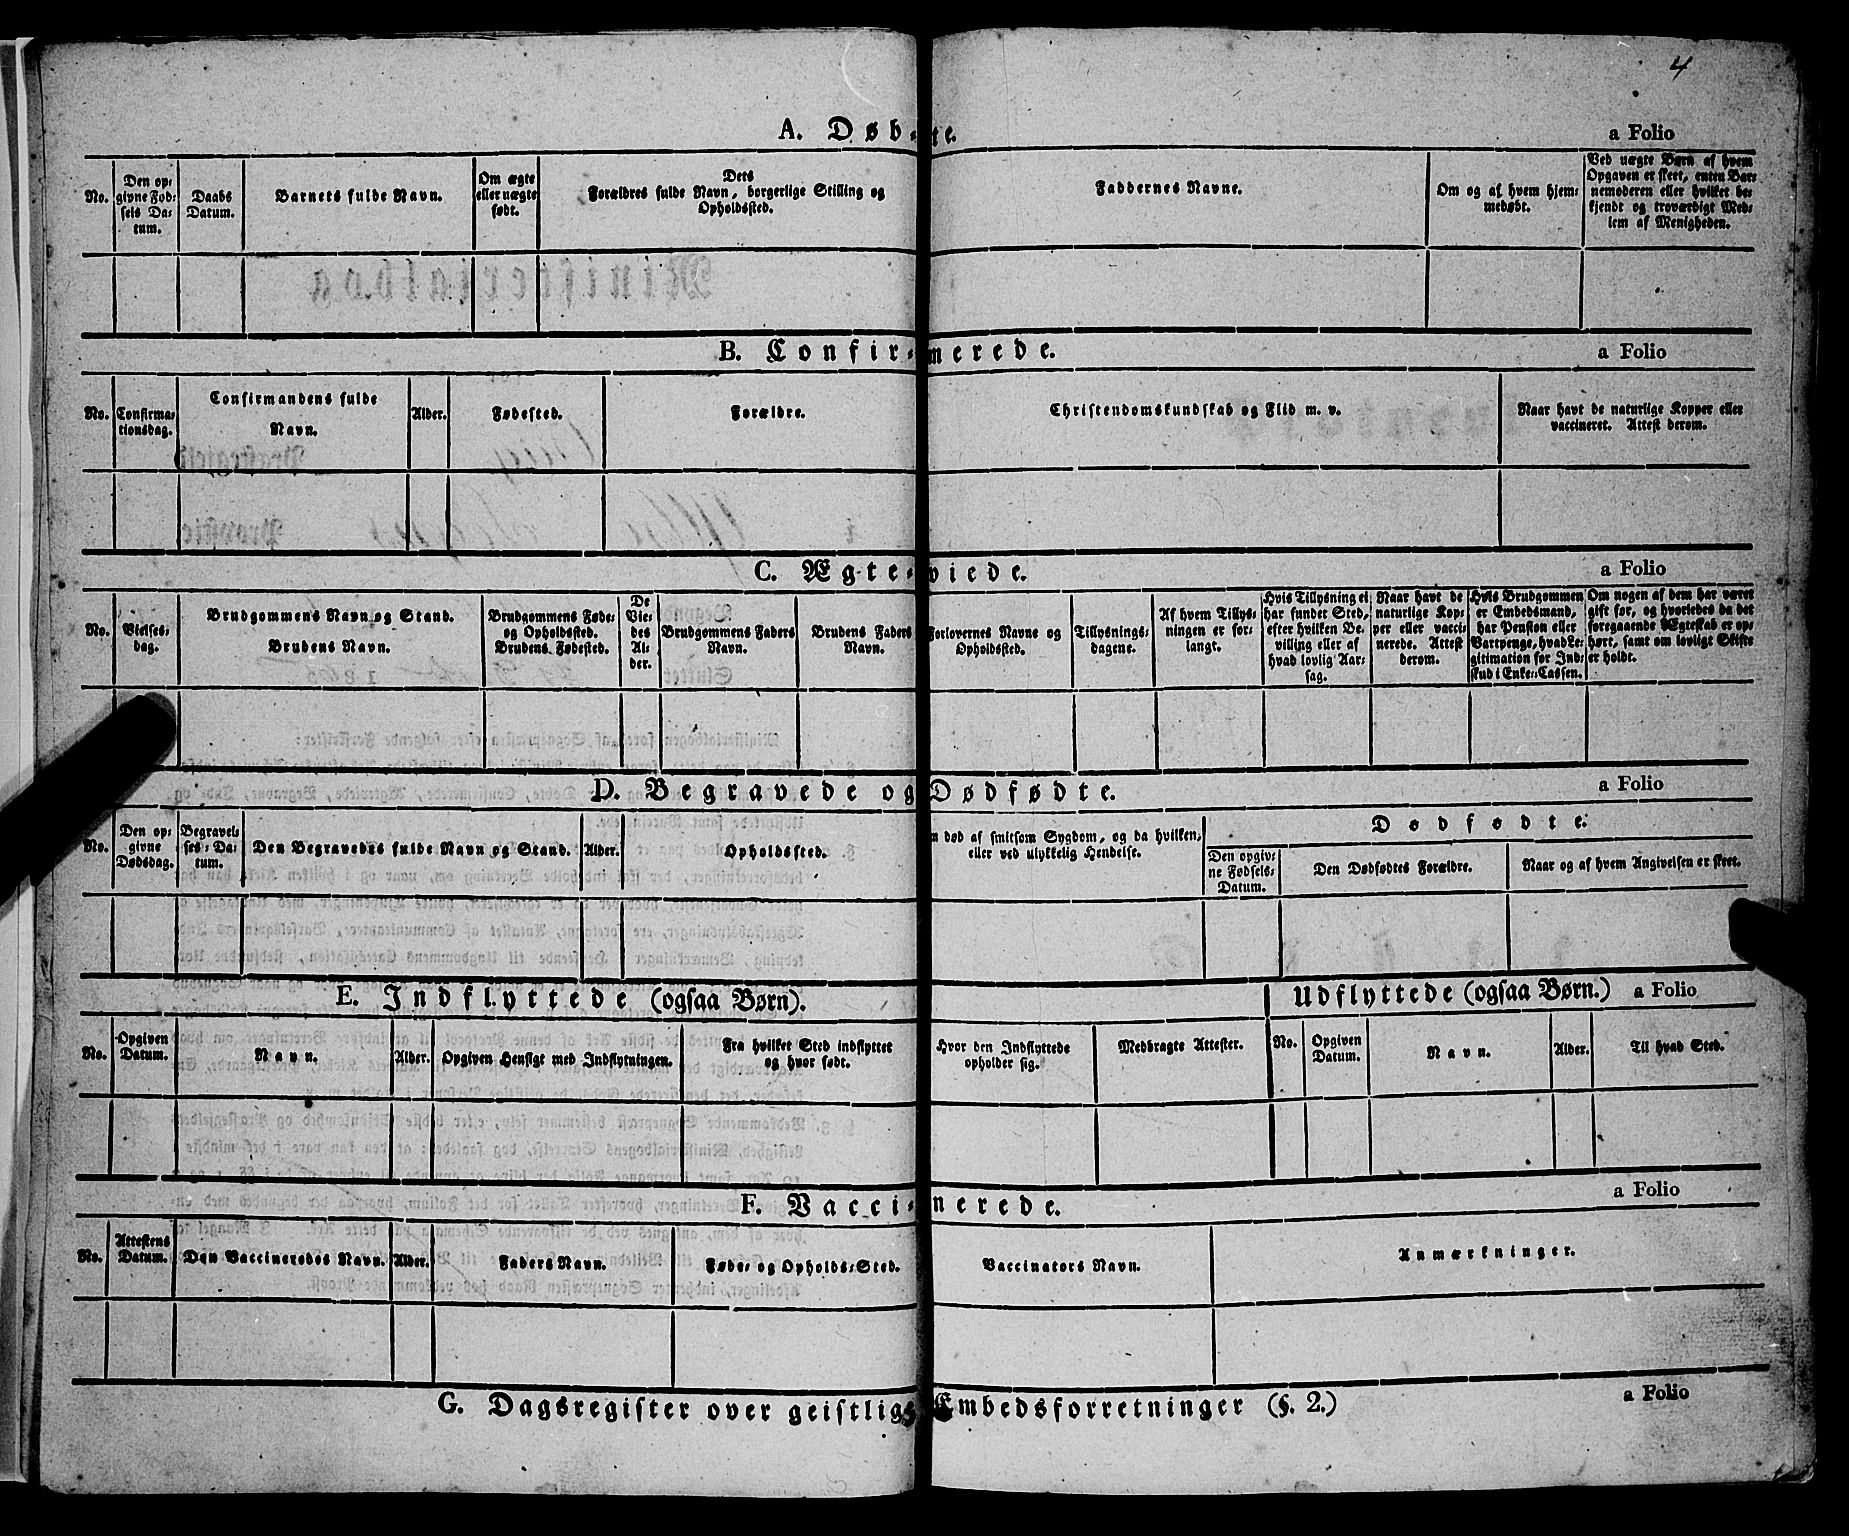 4
A. Døb-te.
a Folio
No.
Den op-
givne Fød-
sels Da-
tum.
Daabs
Datum.
Barnets fulde Navn.
Om ægte
eller uægte
født.
Dets
Forældres fulde Navn, borgerlige Stilling og
Opholdssted.
Faddernes Navne.
Om og af hvem hjem-
medøbt.
Ved uægte Børn af hvem
Opgaven er skeet, enten Bar-
nemoderen eller hvilket be-
kjendt og troværdigt Med-
lem af Menigheden.
B. Confir-merede.
a Folio
No.
Confirma-
tionsdag.
Confirmandens fulde
Navn.
Alder.
Fødested.
Forældre.
Christendomskundskab og Flid m. v.
Naar havt de naturlige Kopper eller
vaccineret. Attest derom.
C. Ægte-viede.
a Folio
No.
Vielses-
dag.
Brudgommens Navn og Stand.
Brudens Navn.
Brudgommens Føde-
og Opholdssted.
Brudens Fødested.
De
Vie-
des
Al-
der.
Brudgommens Faders
Navn.
Brudens Faders
Navn.
Forlovernes Navne og
Opholdssted.
Tillysnings-
dagene.
Af hvem Tillys-
ningen er for-
langt.
Hvis Tillysning ei
har fundet Sted,
efter hvilken Be-
villing eller af
hvad lovlig Aar-
sag.
Naar havt de
naturlige Kop-
per eller vacci-
nerede. Attest
derom.
Hvis Brudgommen
er Embedsmand,
har Pension eller
Vartpenge, hvad Le-
gitimation for Ind-
skud i Enke-Cassen.
Om nogen af dem har været
gift før, og hvorledes da det
foregaaende Ægteskab er op-
hørt, samt om lovligt Skifte
er holdt.
D. Begravede og Dødfødte.
a Folio
No.
Den op-
givne
Dødsdag.
Begravel-
ses-Da-
tum.
Den Begravedes fulde Navn og Stand.
Alder.
Opholdssted.
død af smitsom Sygdom, og da hvilken,
eller ved ulykkelig Hendelse.
Dødfødte.
Den opgiv-
ne Fødsels-
Datum.
Den Dødfødtes Forældre.
Naar og af hvem Angivelsen er skeet.
E. Indflyttede (ogsaa Børn).
Udflyttede (ogsaa Børn.)
a Folio
No.
Opgiven
Datum.
Navn.
Alder.
Opgiven Hensigt med Indflytningen.
Fra hvilket Sted indflyttet
og hvor født.
Hvor den Indflyttede
opholder sig.
Medbragte Attester.
No.
Opgiven
Datum.
Navn.
Alder.
Til hvad Sted.
F. Vacci-nerede.
a Folio
No.
Attestens
Datum.
Den Vaccineredes Navn.
Alder.
Faders Navn.
Føde- og Opholds-Sted.
Vaccinators Navn.
Anmærkninger.
G. Dagsregister over geistlige Embedsforretninger (§. 2.)
a Folio